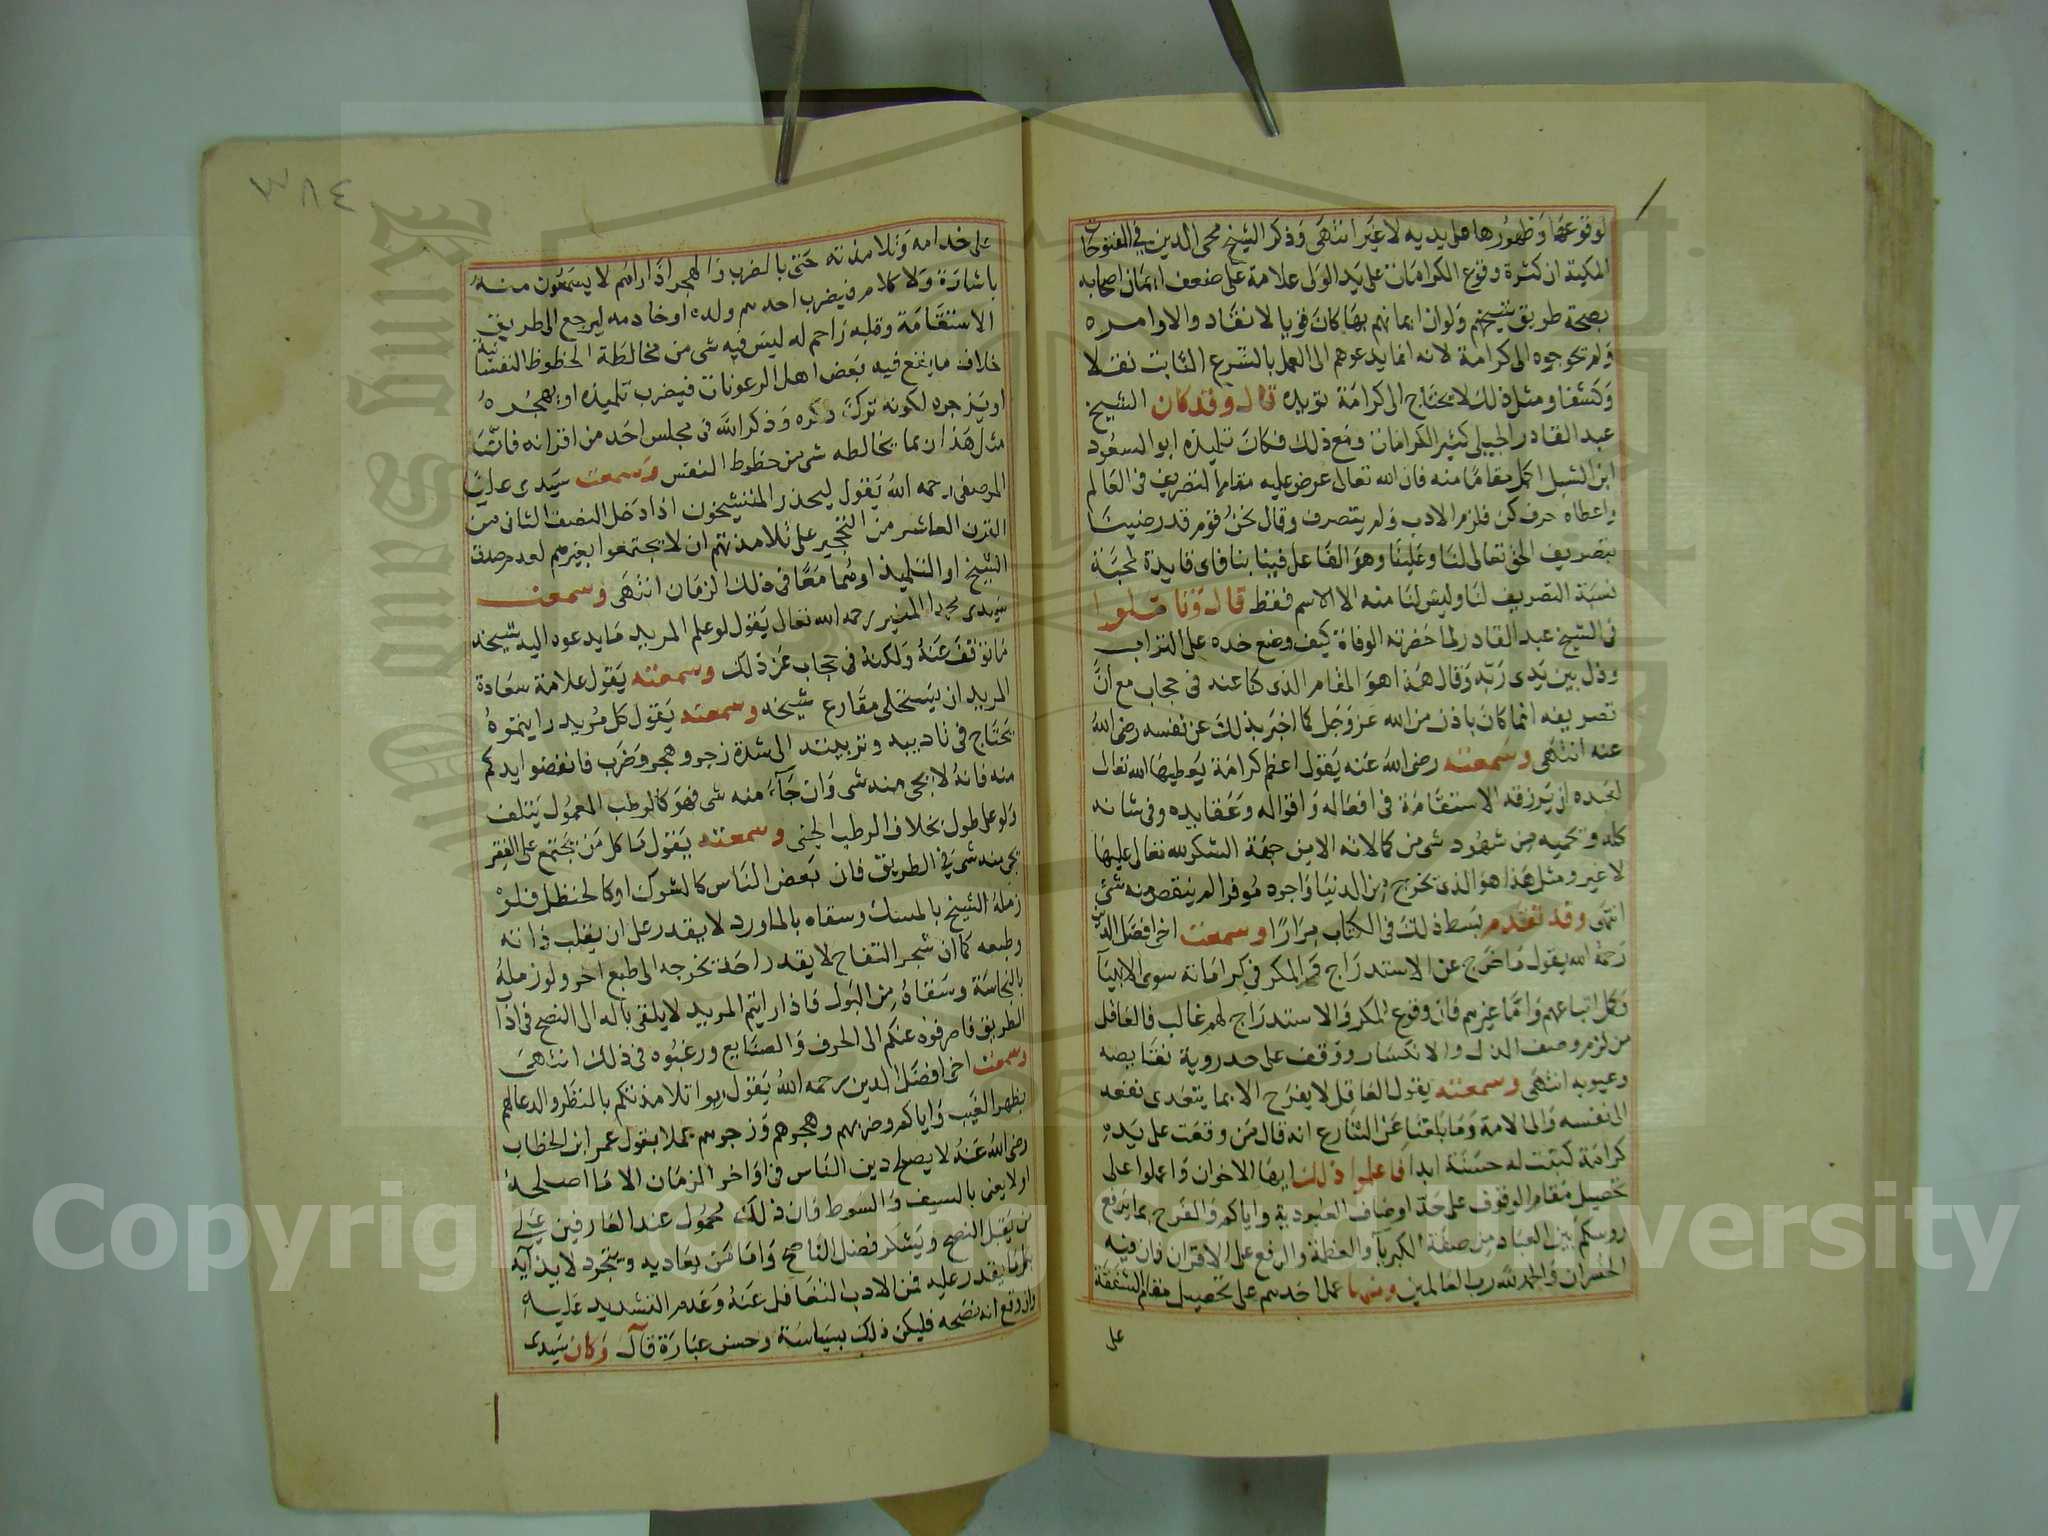 لوقوعها وظهورها على يديه لا غير انتهى وذكر الشيخ محى الدين في الفتوحات
المكية ان كثرة وقوع الكرامات على يد الولى علامة على ضعف ايمان اصحابه
بصحة طريق شيخهم ولو ان ايمانهم بها كان قويا لانقاد والاوامره
ولم تحوجوه الى كرامة لانه انما يدعوهم الى العمل بالشرع الثابت نقلا
وكشفا ومثل ذلك لا يحتاج الى كرامة تؤيده قال وقد كان الشيخ
عبد القادر الجيلى كثير الكرامات ومع ذلك فكان تلميذه ابو السعود
ابن الشبل اكمل مقاما منه فان الله تعالى عرض عليه مقام التصريف فى العالم
واعطاه حرف كن فلزم الادب ولم يتصرف وقال نحن قوم قد رضينا
بتصريف الحق تعالى لنا وعلينا وهو الفاعل فينا بنا فاى فايدة لمحبة
نسبة التصريف لنا وليس لنا منه الا الاسم فقط قال وتاملوا
فى الشيخ عبد القادر لما حضرته الوفاة كيف وضع خده على التراب
وذل بين يدى ربه وقال هذا هو المقام الذى كنا عنه فى حجاب مع ان
تصريفه انما كان باذن من الله عز وجل كما اخبر بذلك عن نفسه رضى الله
عنه انتهى وسمعته رضى الله عنه يقول اعظم كرامة يعطيها الله تعالى
لعبده ان يرزقه الاستقامة فى افعاله واقواله وعقايده وفى شانه
كله ويحميه من شهود شى من كمالاته الا من جهة الشكر لله تعالى عليها
لا غير ومثل هذا هو الذى يخرج من الدنيا واجره موفرا لم ينقص منه شئ
انتهى وقد تقدم بسط ذلك فى الكتاب مرارا وسمعت اخى افضل الدين
رحمه الله يقول ما خرج عن الاستدراج والمكر فى كراماته سوى الانبيآ
وكمل اتباعهم واما غيرهم فان وقوع المكر والاستدراج لهم غالب فالعاقل
من لزم وصف الذل والانكسار ووقف على حد روية نقايصه
وعيوبه انتهى وسمعته يقول العاقل لا يفرح الا بما يتعدى نفعه
الى نفسه والى الامة وما بلغنا عن الشارع انه قال من وقعت على يده
كرامة كتبت له حسنة ابدا فاعلموا ذلك ايها الاخوان واعملوا على
تحصيل مقام الوقوف على حد اوصاف العبودية واياكم والفرح بما يرفع
روسكم بين العباد من صفة الكبريآ والعظمة والرفع على الاقران فان فيه
الخسران والحمد لله رب العالمين ومنها عمل احدهم على تحصيل مقام الشفقة
على
٣٨٤
على خدامه وتلامذته حتى بالضرب والهجر اذا راهم لا يسمعون منه
باشارة ولا كلام فيضرب احدهم ولده او خادمه ليرجع الى طريق
الاستقامة وقلبه راحم له ليس فيه شى من مخالطة الحظوظ النفسانية
خلاف ما يقع فيه بعض اهل الرعونات فيضرب تلميذه او يهجره
او يزجره لكونه ترك ذكره وذكر الله فى مجلس احد من اقرانه فان
مثل هذا ربما يخالطه شى من حظوظ النفس وسمعت سيدى عليا
المرصفى رحمه الله يقول ليحذر المتشيخون اذا دخل النصف الثانى من
القرن العاشر من التحجير على تلامذتهم ان لا يجتمعوا بغيرهم لعدم صدق
الشيخ او التلميذ او هما معا فى ذلك الزمان انتهى وسمعت
سيدى محمدا المنير رحمه الله تعالى يقول لو علم المريد ما يدعوه اليه شيخه
ما توقف عنه ولكنه فى حجاب عن ذلك وسمعته يقول علامة سعادة
المريد ان يستحلى مقارع شيخه وسمعته يقول كل مريد رايتموه
يحتاج فى تاديبه وتربيته الى شدة زجر وهجر وضرب فانفضوا ايديكم
منه فانه لا يجى منه شى وان جآء منه شى فهو كالرطب المعمول يتلف
ولو على طول بخلاف الرطب الجنى وسمعته يقول ما كل من يجتمع على الفقير
يجى منه شى فى الطريق فان بعض الناس كالشوك او كالحنظل فلو
زمله الشيخ بالمسك وسقاه بالماورد لا يقدر على ان يقلب ذاته
وطبعه كما ان شجر التفاح لا يقدر احد يخرجه الى طبع اخر ولو زمله
بالنجاسة وسقاه من البول فاذا رايتم المريد لا يلقى باله الى النصح فى اذا
الطريق فاصرفوه عنكم الى الحرف والصنايع ورغبوه فى ذلك انتهى
وسمعت اخى افضل الدين رحمه الله يقول ربوا تلامذتكم بالنظر والدعا لهم
بظهر الغيب واياكم وضربهم وهجرهم وزجرهم عملا بقول عمر ابن الخطاب
رضى الله عنه لا يصلح دين الناس فى اواخر الزمان الا ما اصلحه
اولا يعنى بالسيف والسوط فان ذلك محمول عند العارفين على
من يقبل النصح ويشكر فضل الناصح واما من يعاديه ويتجرد لايذآيه
بكل ما يقدر عليه فمن الادب التغافل عنه وعدم التشديد عليه
وان وقع انه نصحه فليكن ذلك بسياسة وحسن عبارة قال وكان سيدى
Copyright © King Saud University
King Saud University